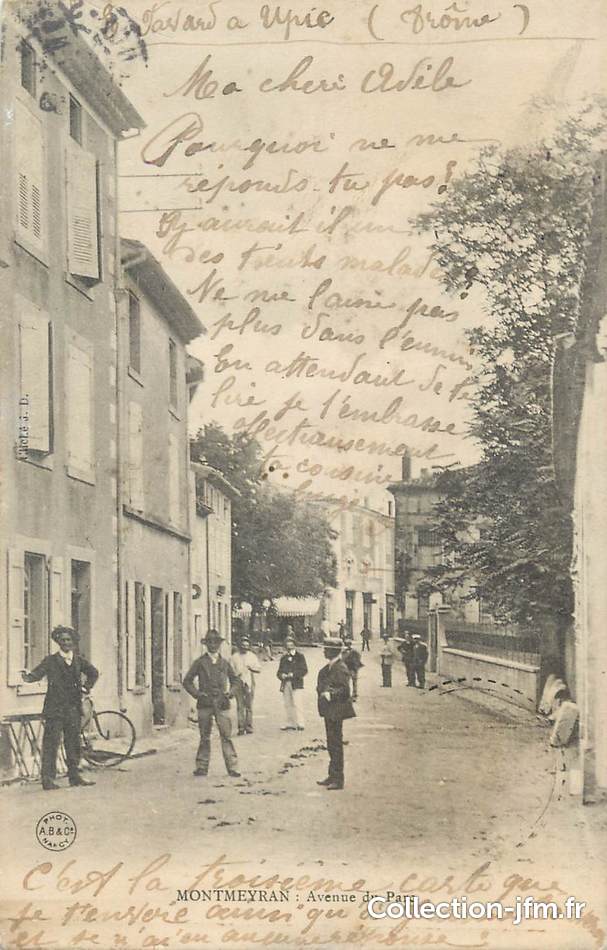 Tavard à Upie ( Drôme )
Ma cheri Adèle
Pourquoi ne me
réponds-tu pas?
Y aurait il un
des tients malade
Ne me laisse pas
plus dans l'ennui
En attendant de te
lire je t'embrasse
affectueusement
ta cousine
Cliché J. D.
PHOT.
A.B & Cie
NANCY
C'est la troisième carte que
MONTMEYRAN : Avenue du Parc
je t'envoie ainsi qu'à
et je n'ai aucune
Collection-jfm.fr